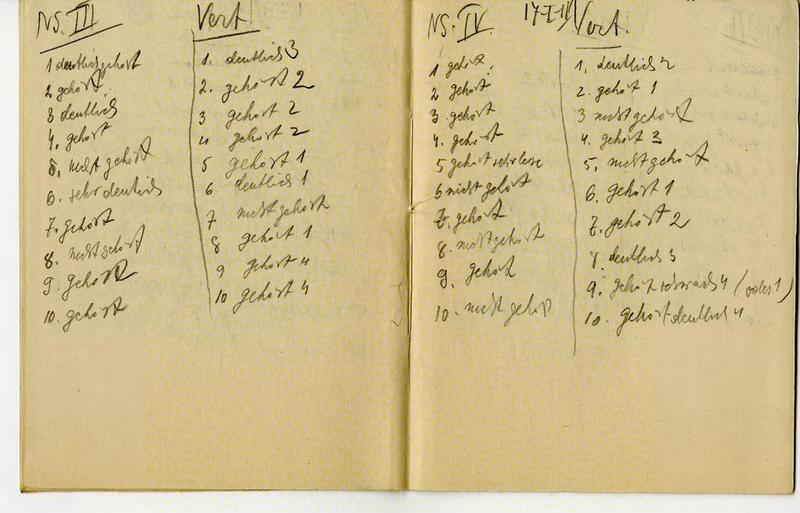 NS. III
1 deutlich gehört
2 gehört
3 deutlich
4. gehört
5. nicht gehört
6. sehr deutlich
7. gehört
8. nicht gehört
9. gehört
10. gehört
Vert.
1. deutlich 3
2. gehört 2
3 gehört 2
4 gehört 2
5 gehört 1
6 deutlich 1
7 nicht gehört
8 gehört 1
9 gehört 4
10 gehört 4
NS. IV.
1 gehört
2 gehört
3. gehört
4. gehört
5 gehört sehr leise
6 nicht gehört
7. gehört
8. nicht gehört
9. gehört
10. nicht gehört
Vert.
1. deutlich 2
2. gehört 1
3 nicht gehört
4. gehört 3
5. nicht gehört
6. gehört 1
7. gehört 2
8. deutlich 3
9. gehört schwach 4 (oder 1)
10. gehört deutlich 4